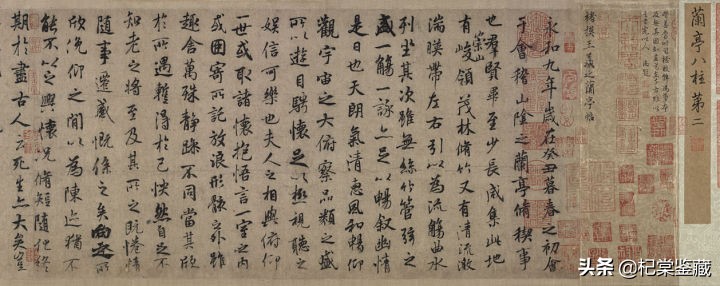 蘭亭八柱第二
褚摹王羲之蘭亭帖
永和九年歲在癸丑暮春之初會
于會稽山陰之蘭亭脩禊事
也群賢畢至少長咸集此地
有崇山峻領茂林脩竹又有清流激
湍暎帶左右引以為流觴曲水
列坐其次雖無絲竹管弦之
盛一觴一詠亦足以暢敘幽情
是日也天朗氣清惠風和暢仰
觀宇宙之大俯察品類之盛
所以遊目騁懷足以極視聽之
娛信可樂也夫人之相與俯仰
一世或取諸懷抱悟言一室之內
或因寄所託放浪形骸之外雖
趣舍萬殊靜躁不同當其欣
於所遇暫得於己快然自足不
知老之將至及其所之既惓情
隨事遷感慨係之矣向之所
欣俛仰之間以為陳迹猶不
能不以之興懷況脩短隨化終
期於盡古人云死生亦大矣豈
头条@杞棠鉴藏